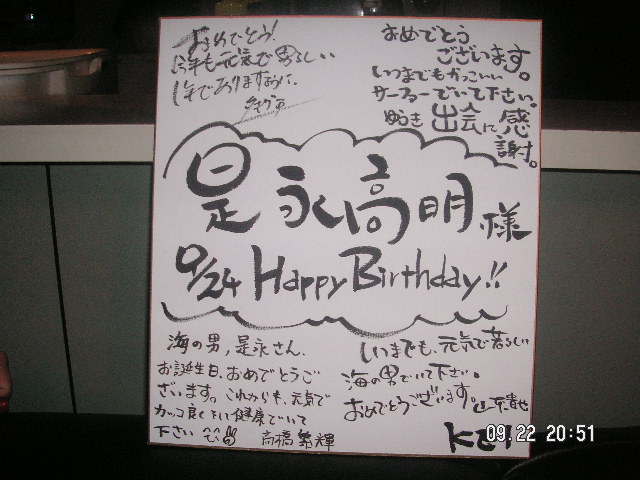 おめでとう!
今年も元気で男らしい
1年でありますように。
おめでとう
ございます。
いつまでもかっこいい
サーファーでいて下さい。
出会に感
謝。
是永高明様
9/24 Happy Birthday!!
海の男,是永さん。
お誕生日,おめでとうご
ざいます。これからも、元気で
カッコ良く 健康でいて
下さい
高橋 輝
いつまでも、元気で若らしい
海の男でいて下さい。
おめでとうございます。
KEI
09.22 20:51